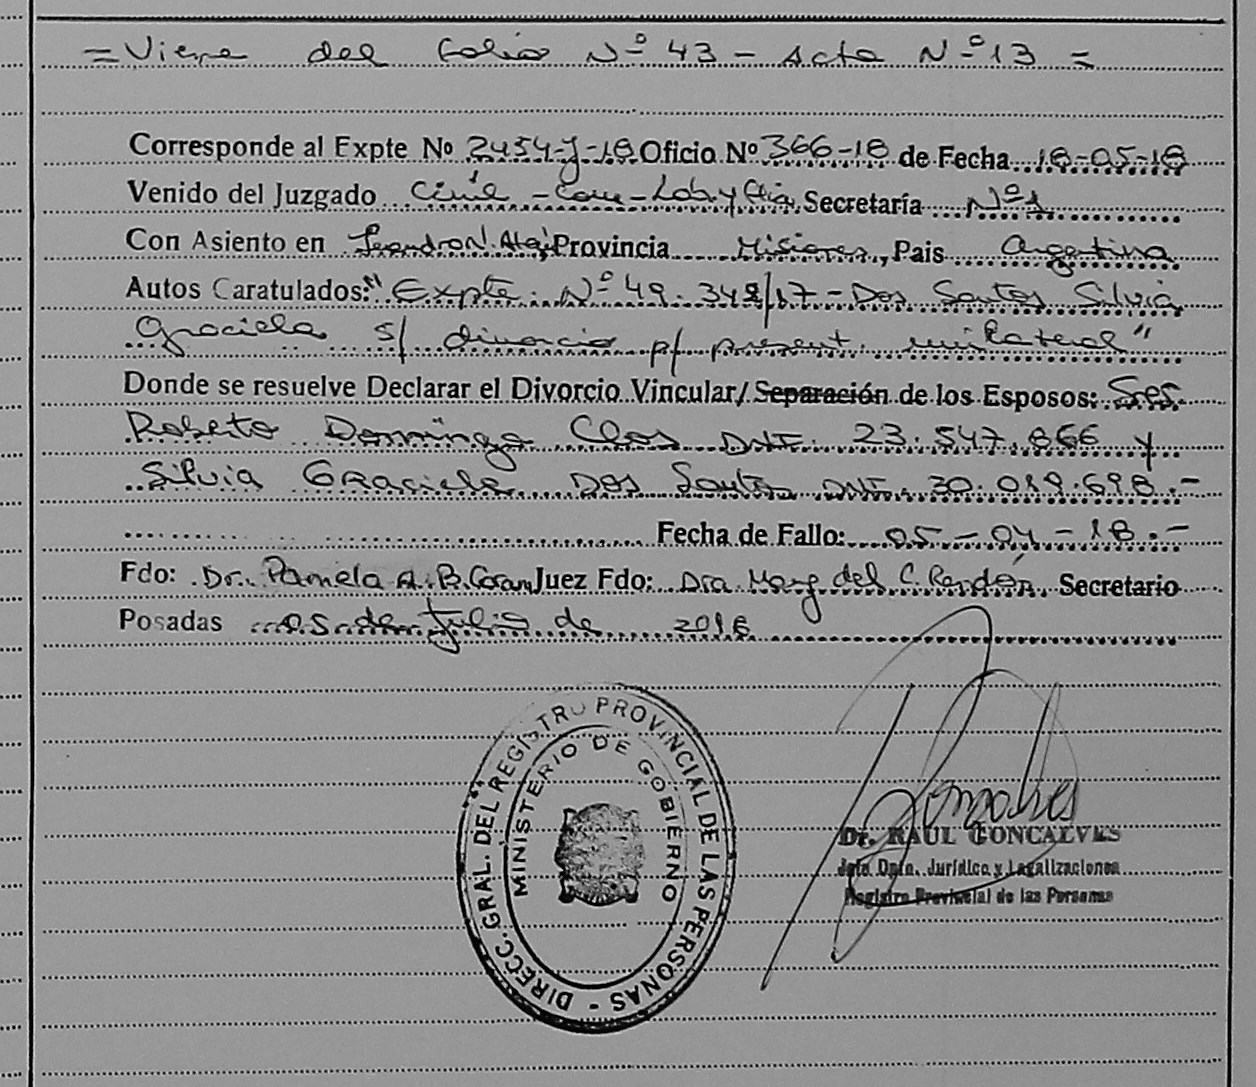 = Viene del folio Nº 43 - Acta Nº 13 =
Corresponde al Expte Nº 2454-J-18 Oficio Nº 366-18 de Fecha 18-05-18
Venido del Juzgado Civil - Com - Lab y Flia. Secretaría Nº1
Con Asiento en Leandro N. Alem Provincia Misiones, Pais Argentina
Autos Caratulados: "Expte. Nº 49.348/17 - Dos Santos Silvia
Graciela s/ divorcio p/ present. unilateral"
Donde se resuelve Declarar el Divorcio Vincular/ Separación de los Esposos: Sres.
Roberto Domingo Clos DNI. 23.547.866 y
Silvia Graciela Dos Santos DNI. 30.019.698.-
Fecha de Fallo: 05-04-18.-
Fdo: Dr. Pamela A. B. Juez Fdo: Dra. Marg del C. Rendón. Secretario
Posadas 05 de Julio de 2018
DIRECC. GRAL. DEL REGISTRO PROVINCIAL DE LAS PERSONAS -
MINISTERIO DE GOBIERNO
Goncalves
Dr. RAUL GONCALVES
Jefe Dpto. Jurídico y Legalizaciones
Registro Provincial de las Personas